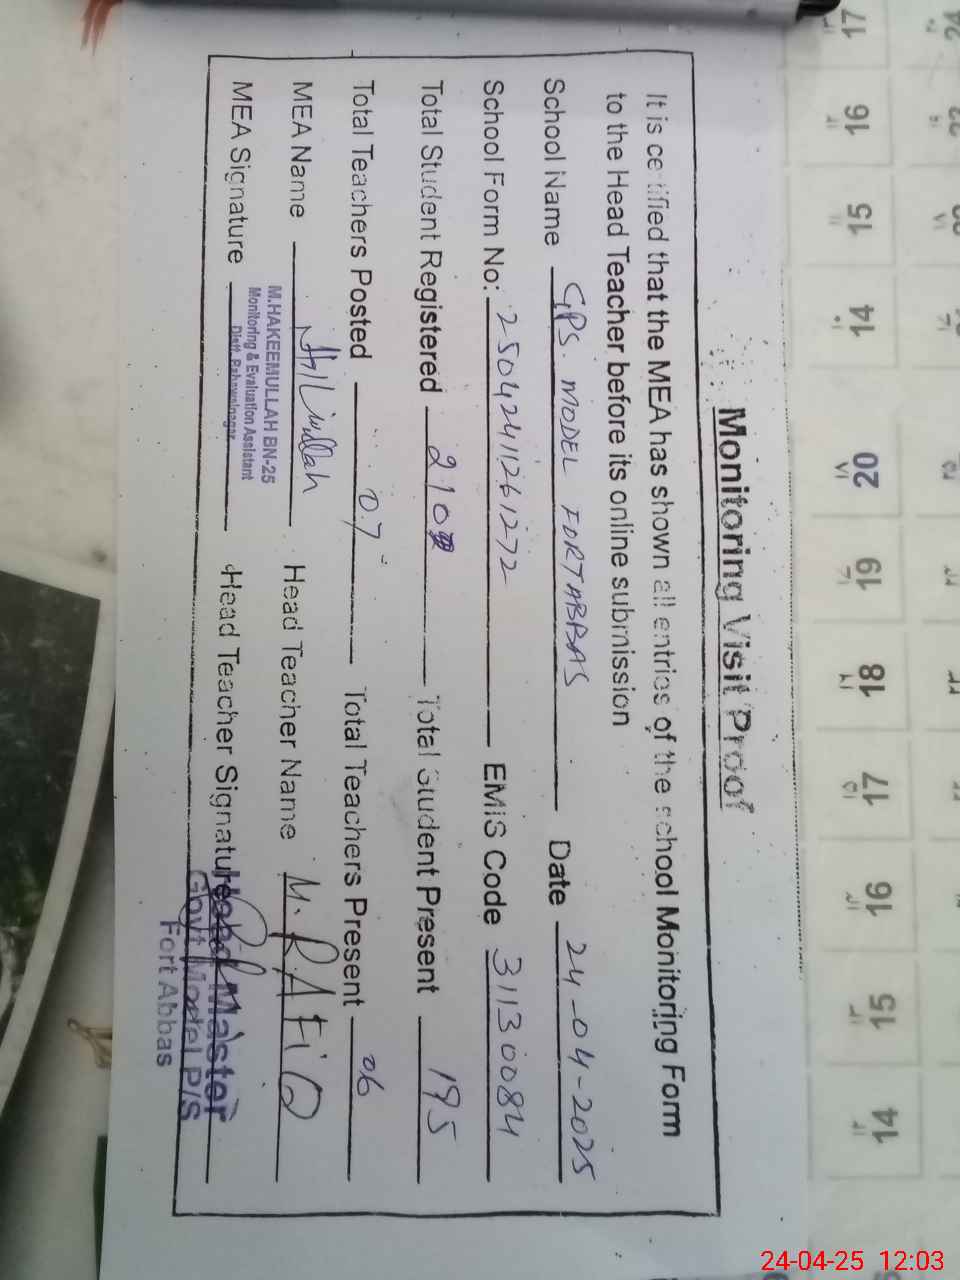 Monitoring Visit Proof
It is certified that the MEA has shown all entries of the school Monitoring Form
to the Head Teacher before its online submission
School Name GPS. MODEL FORTABBAS Date 24-04-2025
School Form No: 25042411261272 EMIS Code 31130084
Total Student Registered 210 Total Student Present 195
Total Teachers Posted 07 Total Teachers Present 06
MEA Name Head Teacher Name M. RAFIQ
M.HAKEEMULLAH BN-25
Monitoring & Evaluation Assistant
Distt. Bahawalnagar
MEA Signature Head Teacher Signature
Head Master
Govt Model P/S
Fort Abbas
17 16 15 14
20 19 18 17 16 15 14
24-04-25 12:03